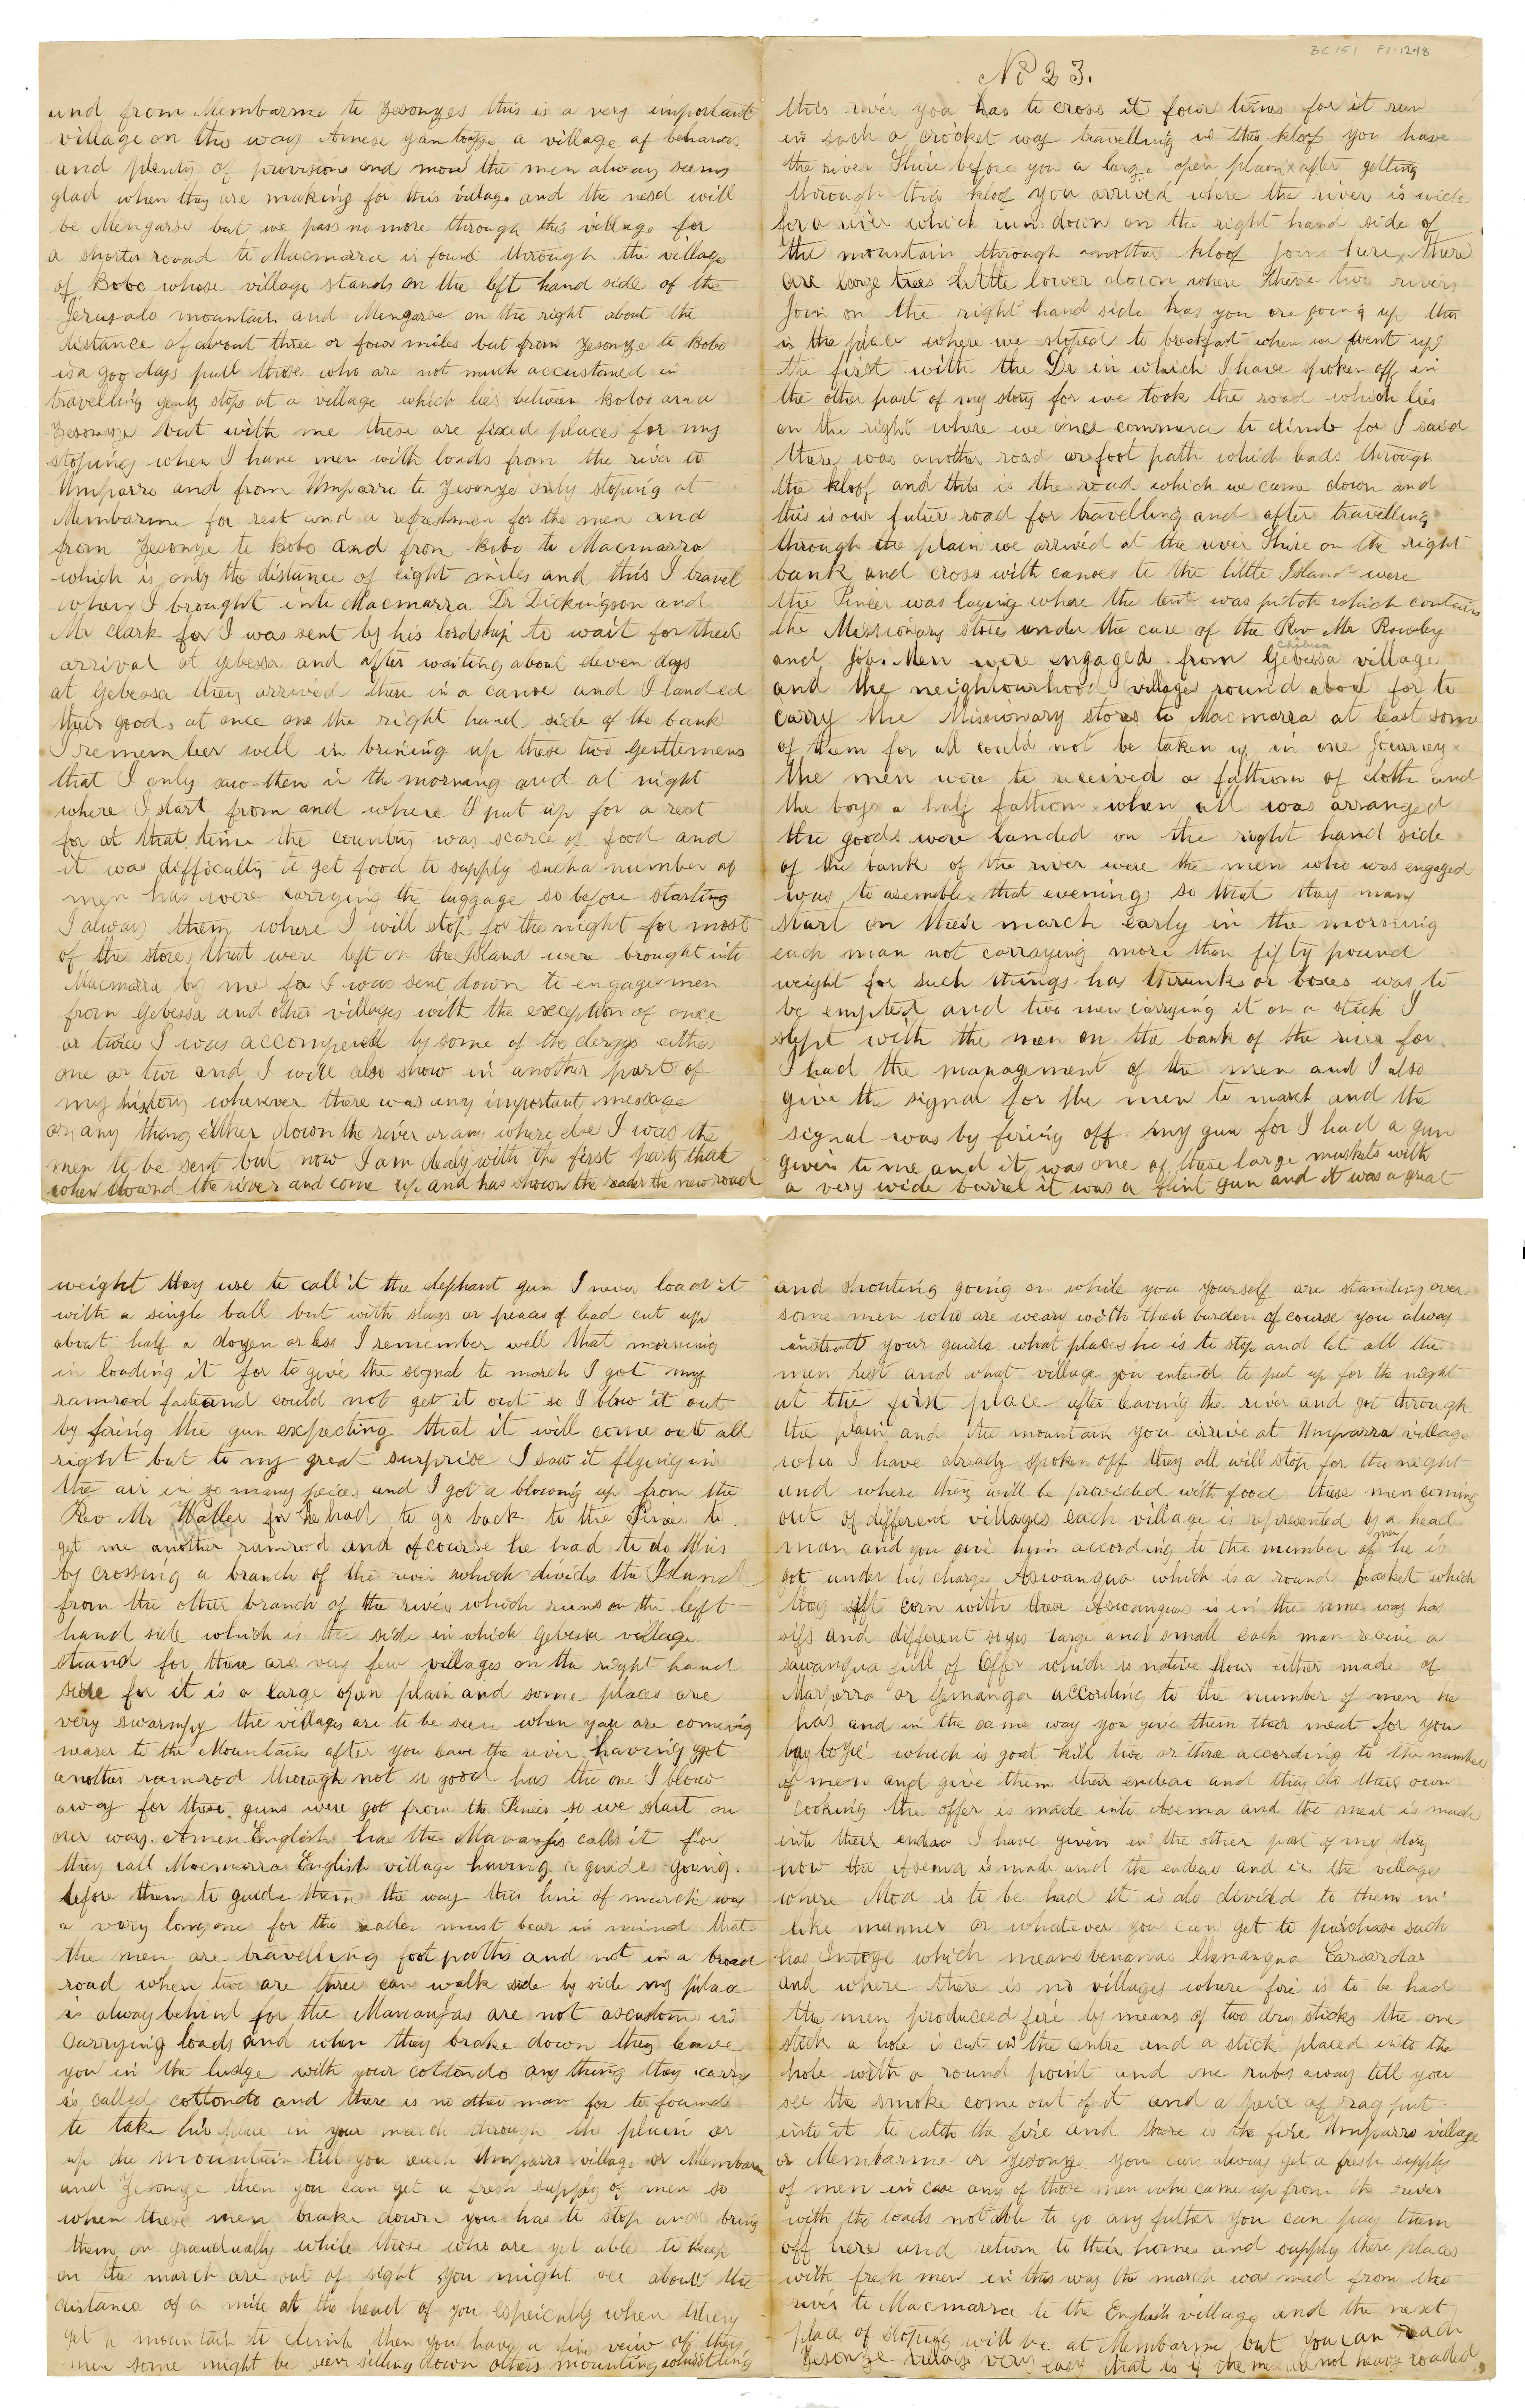 BC 151 F1-1248
No 23.
this river you has to cross it four times for it run
in such a crocket way travelling in this kloof you have
the river Shire before you a large open plain x after getting
through this kloof you arrived where the river is wide
for a river which runs down on the right hand side of
the mountain through another kloof join here x there
are large trees little lower down where these two rivers
Join on the right hand side has you are going up this
is the place where we stoped to breakfast when we went up
the first with the Dr in which I have spoken off in
the other part of my story for we took the road which lies
on the right where we once commence to climb for I said
there was another road or foot path which leads through
the kloof and this is the road which we came down and
this is our future road for travelling and after travelling
through the plain we arrived at the river Shire on the right
bank and cross with canoes to the little Island were
the Pineer was laying where the tent was pitch which contains
the Missionary stores under the care of the Rev Mr Rowley
and Job. Men were engaged from Gebessa village
Chibisa
and the neighbourhood villages round about for to
carry the Missionary stores to Macmarra at least some
of them for all could not be taken up in one journey x
the men were to received a fathom of cloth and
the boys a half fathom x when all was arranged
the goods were landed on the right hand side
of the bank of the river were the men who was engaged
was to asemble x that evening so that they may
start on their march early in the morning
each man not carraying more than fifty pound
weight for such things has thrunks or boxes was to
be emptied and two men carrying it on a stick I
slept with the men on the bank of the river for
I had the management of the men and I also
give the signal for the men to march and the
signal was by firing off my gun for I had a gun
given to me and it was one of those large muskets with
a very wide barrel it was a flint gun and it was a great
weight they use to call it the elephant gun I never load it
with a single ball but with slugs or peaces of lead cut up
about half a dozen or less I remember well that morning
in loading it for to give the signal to march I got my
ramrod fast and could not get it out so I blow it out
by firing the gun expecting that it will come outt all
right but to my great surprise I saw it flying in
the air in so many peices and I got a blowing up from the
Rev Mr Waller for he had to go back to the Pineer to
get me another ramrod and of course he had to do this
by crossing a branch of the river which divides the Island
from the other branch of the river which runs on the left
hand side which is the side in which Gebessa village
stand for there are very few villages on the right hand
side for it is a large open plain and some places are
very swarmpy the villages are to be seen when you are coming
nearer to the Mountains after you leave the river having got
another ramrod though not so good has the one I blow
away for these guns were got from the Pineer so we start on
our way. Amese English has the Mananjas calls it for
they call Macmarra English village having a guide going
before them to guide them the way this line of march was
a very long one for the reader must bear in mind that
the men are travelling foot paths and not in a broad
road when two are three can walk side by side my place
is alway behind for the Mananjas are not ascustom in
carrying loads and when they brake down they leave
you in the ludge with your cottondo any thing they carry
is called cottondo and there is no other man for to found
to take his place in your march through the plain or
up the mountain till you reach Umparra village or Membarme
and Zesonze then you can get a fresh supply of men so
when these men brake down you has to stop and bring
them on grandually while those who are yet able to keep
on the march are out of sight you might see about the
distance of a mile at the head of you espicially when they
get a mountain to climb then you have a fine veiw of they
men some might be seen sitting down others mounting whistling
and shouting going on while you yourself are standing over
some men who are weary with their burden of course you alway
instruct your guide what places he is to stop and let all the
men rest and what village you entend to put up for the night
at the first place after leaving the river and got through
the plain and the mountain you arrive at Umparra village
who I have already spoken off they all will stop for the night
and where they will be provided with food these men coming
out of different villages each village is represented by a head
man and you give him according to the number of men he is
got under his charge Aswangua which is a round basket which
they sift corn with these Aswangua is in the same way has
sifs and different sizes large and small each man receive a
sawangua full of Offer which is native flour either made of
Marparra or Gemanga according to the number of men he
has and in the same way you give them their meat for you
buy boyie which is goat kill two or three according to the number
of men and give them their endeao and they do their own
cooking the offer is made into Asema and the meat is made
into their endeao I have given in the other part of my story
how the Asema is made and the endeao and in the village
where Moa is to be had it is also divided to them in
like manner or whatever you can get to purchase such
has Intoge which means benanas Umanangua Cariardas
and where there is no villages where fire is to be had
the men produceed fire by means of two dry sticks the one
stick a hole is cut in the centre and a stick placed into the
hole with a round point and one rubs away till you
see the smoke come out of it and a peice of rag put
into it to catch the fire and there is the fire Umparra village
or Membarme or Zesonze you can alway get a fresh supply
of men in case any of those men who came up from the river
with the loads not able to go any futher you can pay them
off here and return to their homes and supply there places
with fresh men in this way the march was mad from the
river to Macmarra to the English village and the next
place of stoping will be at Membarme but you can reach
Zesonze village very easy that is if the men are not heavy loaded
and from Membarme to Zesonzes this is a very important
village on this way Amese yan togge a village of benanas
and plenty of provisions and more the men alway seems
glad when they are making for this village and the nesd will
be Mengarse but we pass no more through this village for
a shorter rooad to Macmarra is found through the village
of Bobo whose village stands on the left hand side of the
Jerusalo mountain and Mengarse on the right about the
distance of about three or four miles but from Zesonze to Bobo
is a goo days pull those who are not much accustomed in
travelling genly stops at a village which lies between Boboo and
Zesonze but with me these are fixed places for my
stoping when I have men with loads from the river to
Umparro and from Umparro to Zesonze only stoping at
Membarme for rest and a refreshmen for the men and
from Zesonze to Bobo and from Bobo to Macmarra
which is only the distance of eight miles and this I travel
when I brought into Macmarra Dr Dickingson and
Mr Clark for I was sent by his lordship to wait for their
arrival at Gebessa and after waiting about eleven days
at Gebessa they arrived there in a canoe and I landed
their goods at once on the right hand side of the bank
I remember well in brining up these two Gentlemens
that I only saw then in the morning and at night
where I start from and where I put up for a rest
for at that time the country was scarce of food and
it was difficulty to get food to supply such a number of
men has were carrying the luggage so before starting
I alway them where I will stop for the night for most
of the stores that were left on the Island were brought into
Macmarra by me for I was sent down to engage men
from Gebessa and other villages with the exception of once
or twice I was accompenied by some of the clergys either
one or two and I will also show in another part of
my history wherever there was any important message
or any thing either down the river or any where else I was the
men to be sent but now I am dealy with the first party that
when dowend the river and come up and has shown the reader the new road